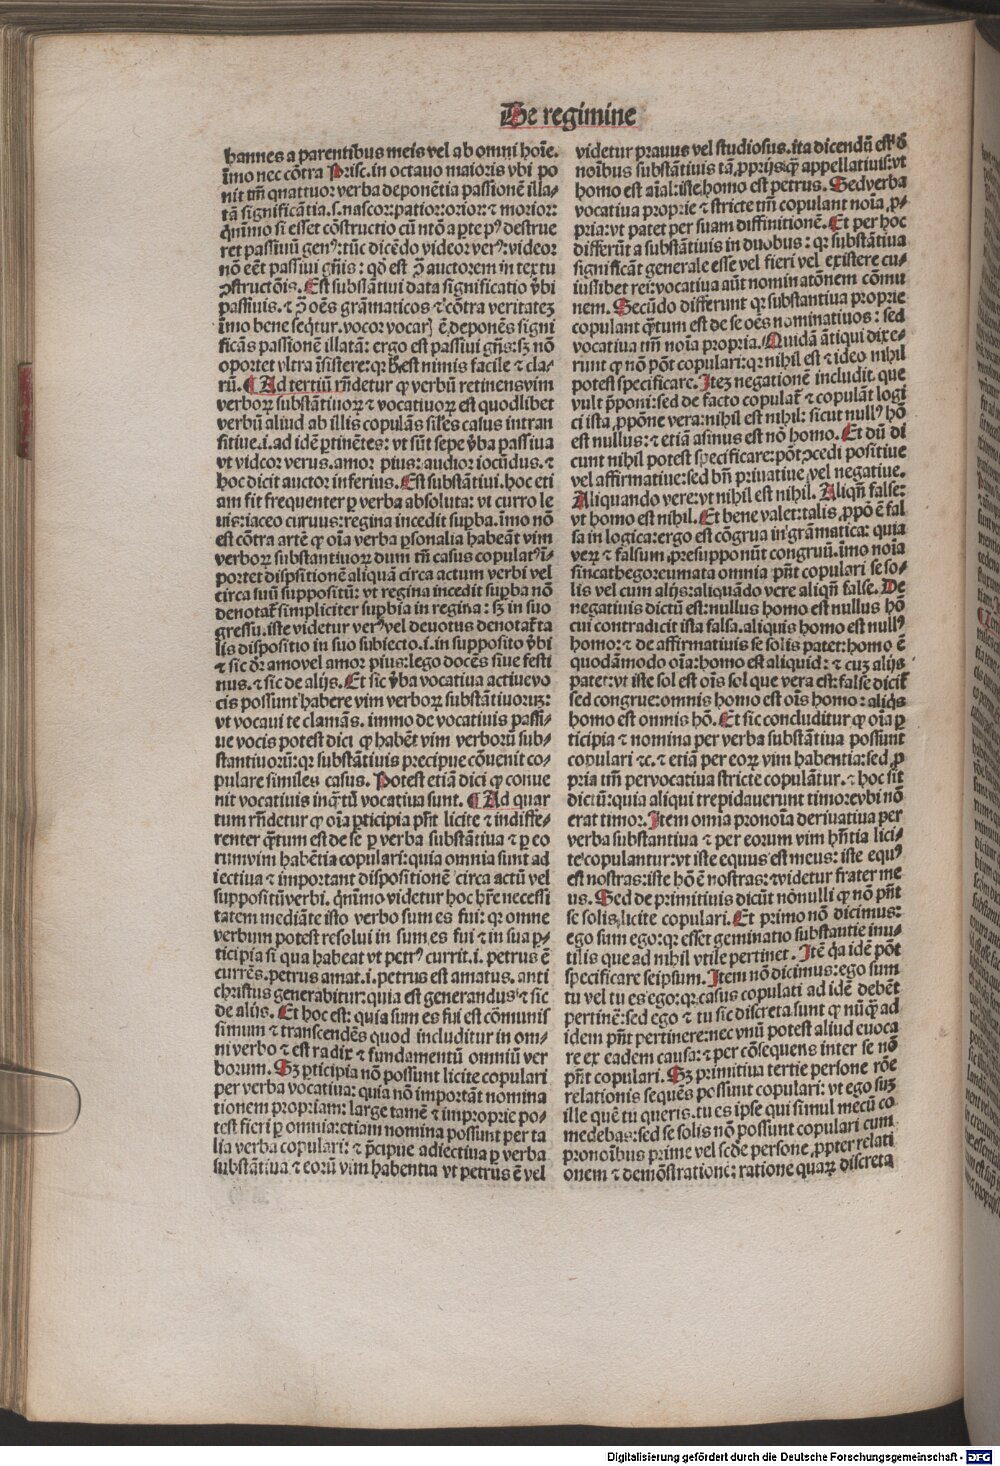 De regimine
hannes a parentibus meis vel ab omni hoīe.
īmo nec cōtra Prisc. in octauo maioris vbi po
nit tm̄ quattuor verba deponētia passionē illa-
tā significātia.s.nascor:patior:orior:⁊ morior:
qn̄immo si esset cōstructio cū ntō a pte pꝰ destrue
ret passiuū genꝰ:tūc dicēdo videor verꝰ:videor
nō eēt passiui gn̄is: qd̄ est ꝯ̄ auctorem in textu
ꝯstructōis. Est substātiui data significatio v̄bi
passiuis. ⁊ ꝯ̄ oēs grāmaticos ⁊ cōtra veritatez
īmo bene seq̄tur. vocor vocarꝭ ē deponēs signi
ficās passionē illatā: ergo est passiui gn̄is: sꝫ nō
oportet vltra īsistere: qꝛ h̄ est nimis facile ⁊ cla-
rū. ¶ Ad tertiū rn̄detur ꝙ verbū retinens vim
verboꝝ substātiuoꝝ ⁊ vocatiuoꝝ est quodlibet
verbū aliud ab illis copulās sil̄es casus intran
sitiue.i.ad idē ꝑtinētes: vt sūt sepe v̄ba passiua
vt videor verus.amor pius: audior iocūdus.⁊
hoc dicit auctor inferius. Est substātiui. hoc eti
am fit frequenter ꝑ verba absoluta: vt curro le
uis: iaceo curuus: regina incedit suꝑba. īmo nō
est cōtra artē ꝙ oīa verba ꝑsonalia habeāt vim
verboꝝ substantiuoꝝ dum tm̄ casus copulatꝰ ī-
portet dispsitionē aliquā circa actum verbi vel
circa suū suppositū: vt regina incedit suꝑba nō
denotat̄ simpliciter suꝑbia in regina: sꝫ in suo
gressu.iste videtur verꝰ vel deuotus denotat̄ ta
lis dispositio in suo subiecto.i.in supposito v̄bi
⁊ sic dr̄ amo vel amor pius: lego docēs siue festi
nus.⁊ sic de alijs. Et sic v̄ba vocatiua actiue vo
cis possunt habere vim verborum substātiuorum:
vt vocaui te clamās. immo de vocatiuis passi-
ue vocis potest dici ꝙ habēt vim verborū sub-
stantiuorū: qꝛ substātiuis precipue cōuenit co-
pulare similes casus. Potest etiā dici ꝙ conue
nit vocatiuis inq̄tū vocatiua sunt. ¶ Ad quar
tum rn̄detur ꝙ oīa ꝑticipia pn̄t licite ⁊ indiffe-
renter q̄tum est de se ꝑ verba substātiua ⁊ ꝑ eo
rum vim habētia copulari: quia omnia sunt ad
iectiua ⁊ important dispositionē circa actū vel
suppositū verbi. qn̄immo videtur hoc hr̄e necessi
tatem mediāte isto verbo sum es fui: qꝛ omne
verbum potest resolui in sum es fui ⁊ in sua ꝑ-
ticipia si qua habeat vt petrꝰ currit.i.petrus ē
currēs.petrus amat.i.petrus est amatus. anti
christus generabitur: quia est generandus ⁊ sic
de alijs. Et hoc est: quia sum es fui est cōmunis
simum ⁊ transcendēs quod includitur in om-
ni verbo ⁊ est radix ⁊ fundamentū omniū ver
borum. Sꝫ ꝑticipia nō possunt licite copulari
per verba vocatiua: quia nō importāt nomina
tionem propriam: large tamē ⁊ improprie po-
test fieri ꝑ omnia: etiam nomina possunt per ta
lia verba copulari: ⁊ p̄cipue adiectiua ꝑ verba
substātiua ⁊ eorū vim habentia vt petrus ē vel
videtur prauus vel studiosus. ita dicendū est d̄
noībus substātiuis tā ꝓprijs q̄ appellatiuis: vt
homo est aīal: iste homo est petrus. Sed verba
vocatiua proprie ⁊ stricte tm̄ copulant noīa ꝓ-
pria: vt patet per suam diffinitionē. Et per hoc
differūt a substātiuis in duobus: qꝛ substātiua
significāt generale esse vel fieri vel existere cu-
iuslibet rei: vocatiua aūt nominatōnem cōmu
nem. Secūdo differunt qꝛ substantiua proprie
copulant q̄tum est de se oēs nominatiuos: sed
vocatiua tm̄ noīa propria. Quidā ātiqui dixe-
runt ꝙ nō pōt copulari: qꝛ nihil est ⁊ ideo nihil
potest specificare. Itez negationē includit. que
vult p̄poni: sed de facto copulat̄ ⁊ copulāt logi
ci ista ꝓpōne vera: nihil est nihil: sicut nullꝰ hō
est nullus: ⁊ etiā asinus est nō homo. Et dū di
cunt nihil potest specificare: pōt ꝯcedi positiue
vel affirmatiue: sed bn̄ priuatiue vel negatiue.
Aliquando vere: vt nihil est nihil. Aliqn̄ false:
vt homo est nihil. Et bene valet: talis ꝓpō ē fal
sa in logica: ergo est cōgrua in grāmatica: quia
verꝝ ⁊ falsum presupponūt congruū. īmo noīa
sincathegoreumata omnia pn̄t copulari se so-
lis vel cum alijs: aliquādo vere aliqn̄ false. De
negatiuis dictū est: nullus homo est nullus hō
cui contradicit ista falsa. aliquis homo est nullꝰ
homo: ⁊ de affirmatiuis se solis patet: homo ē
quodāmodo oīa: homo est aliquid: ⁊ cuz alijs
patet: vt iste sol est oīs sol que vera est: false dicit̄
sed congrue: omnis homo est oīs homo: aliq̄s
homo est omnis hō. Et sic concluditur ꝙ oīa ꝑ
ticipia ⁊ nomina per verba substātiua possunt
copulari ⁊c. ⁊ etiā per eoꝝ vim habentia: sed ꝓ
pria tm̄ per vocatiua stricte copulātur. ⁊ hoc sit
dictū: quia aliqui trepidauerunt timore vbi nō
erat timor. Item omnia pronoīa deriuatiua per
verba substantiua ⁊ per eorum vim hn̄tia lici-
te copulantur: vt iste equus est meus: iste equꝰ
est nostras: iste hō ē nostras: ⁊ videtur frater me
us. Sed de primitiuis dicūt nōnulli ꝙ nō pn̄t
se solis licite copulari. Et primo nō dicimus:
ego sum ego: qꝛ esset geminatio substantie inu-
tilis que ad nihil vtile pertinet. Itē q̄a idē pōt
specificare seipsum. Item nō dicimus: ego sum
tu vel tu es ego: qꝛ casus copulati ad idē debēt
pertinē: sed ego ⁊ tu sic discreta sunt ꝙ nūq̄ ad
idem pn̄t pertinere: nec vnū potest aliud euoca
re ex eadem causa: ⁊ per cōsequens inter se nō
pn̄t copulari. Sꝫ primitiua tertie persone rōe
relationis sequēs possunt copulari: vt ego sum
ille quē tu queris. tu es ipse qui simul mecū co
medebas: sed se solis nō possunt copulari cum
pronoībus prime vel secde persone ꝓpter relati
onem ⁊ demōstrationē: ratione quarꝝ discreta
Digitalisierung gefördert durch die Deutsche Forschungsgemeinschaft - DFG